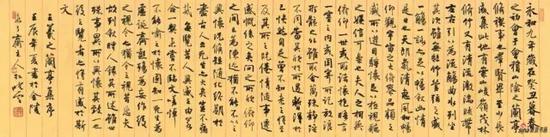 永和九年歲在癸丑暮春
之初會于會稽山陰之蘭亭
脩禊事也群賢畢至少長
咸集此地有崇山峻領茂林
脩竹又有清流激湍映帶
左右引以為流觴曲水列坐其次
雖無絲竹管弦之盛一觴一詠亦
足以暢敘幽情是日也
天朗氣清惠風和暢
仰觀宇宙之大俯察品類之
盛所以遊目騁懷足以極視聽之
娛信可樂也夫人之相與
俯仰一世或取諸懷抱悟言一室
之內或因寄所託放浪形骸之外
雖趣舍萬殊靜躁不同
當其欣於所遇暫得於
己快然自足不知老之將至
及其所之既倦情隨事遷
感慨係之矣向之所欣俯仰
之間已為陳迹猶不能不以之
興懷況脩短隨化終期於盡
古人云死生亦大矣豈不痛
哉每覽昔人興感之由若
合一契未嘗不臨文嗟悼
不能喻之於懷固知一死生為
虛誕齊彭殤為妄作後
之視今亦猶今之視昔悲夫
故列敘時人錄其所述雖世
殊事異所以興懷其致一也
後之覽者亦將有感於斯
文
王羲之蘭亭集序
壬辰年夏書於金陵